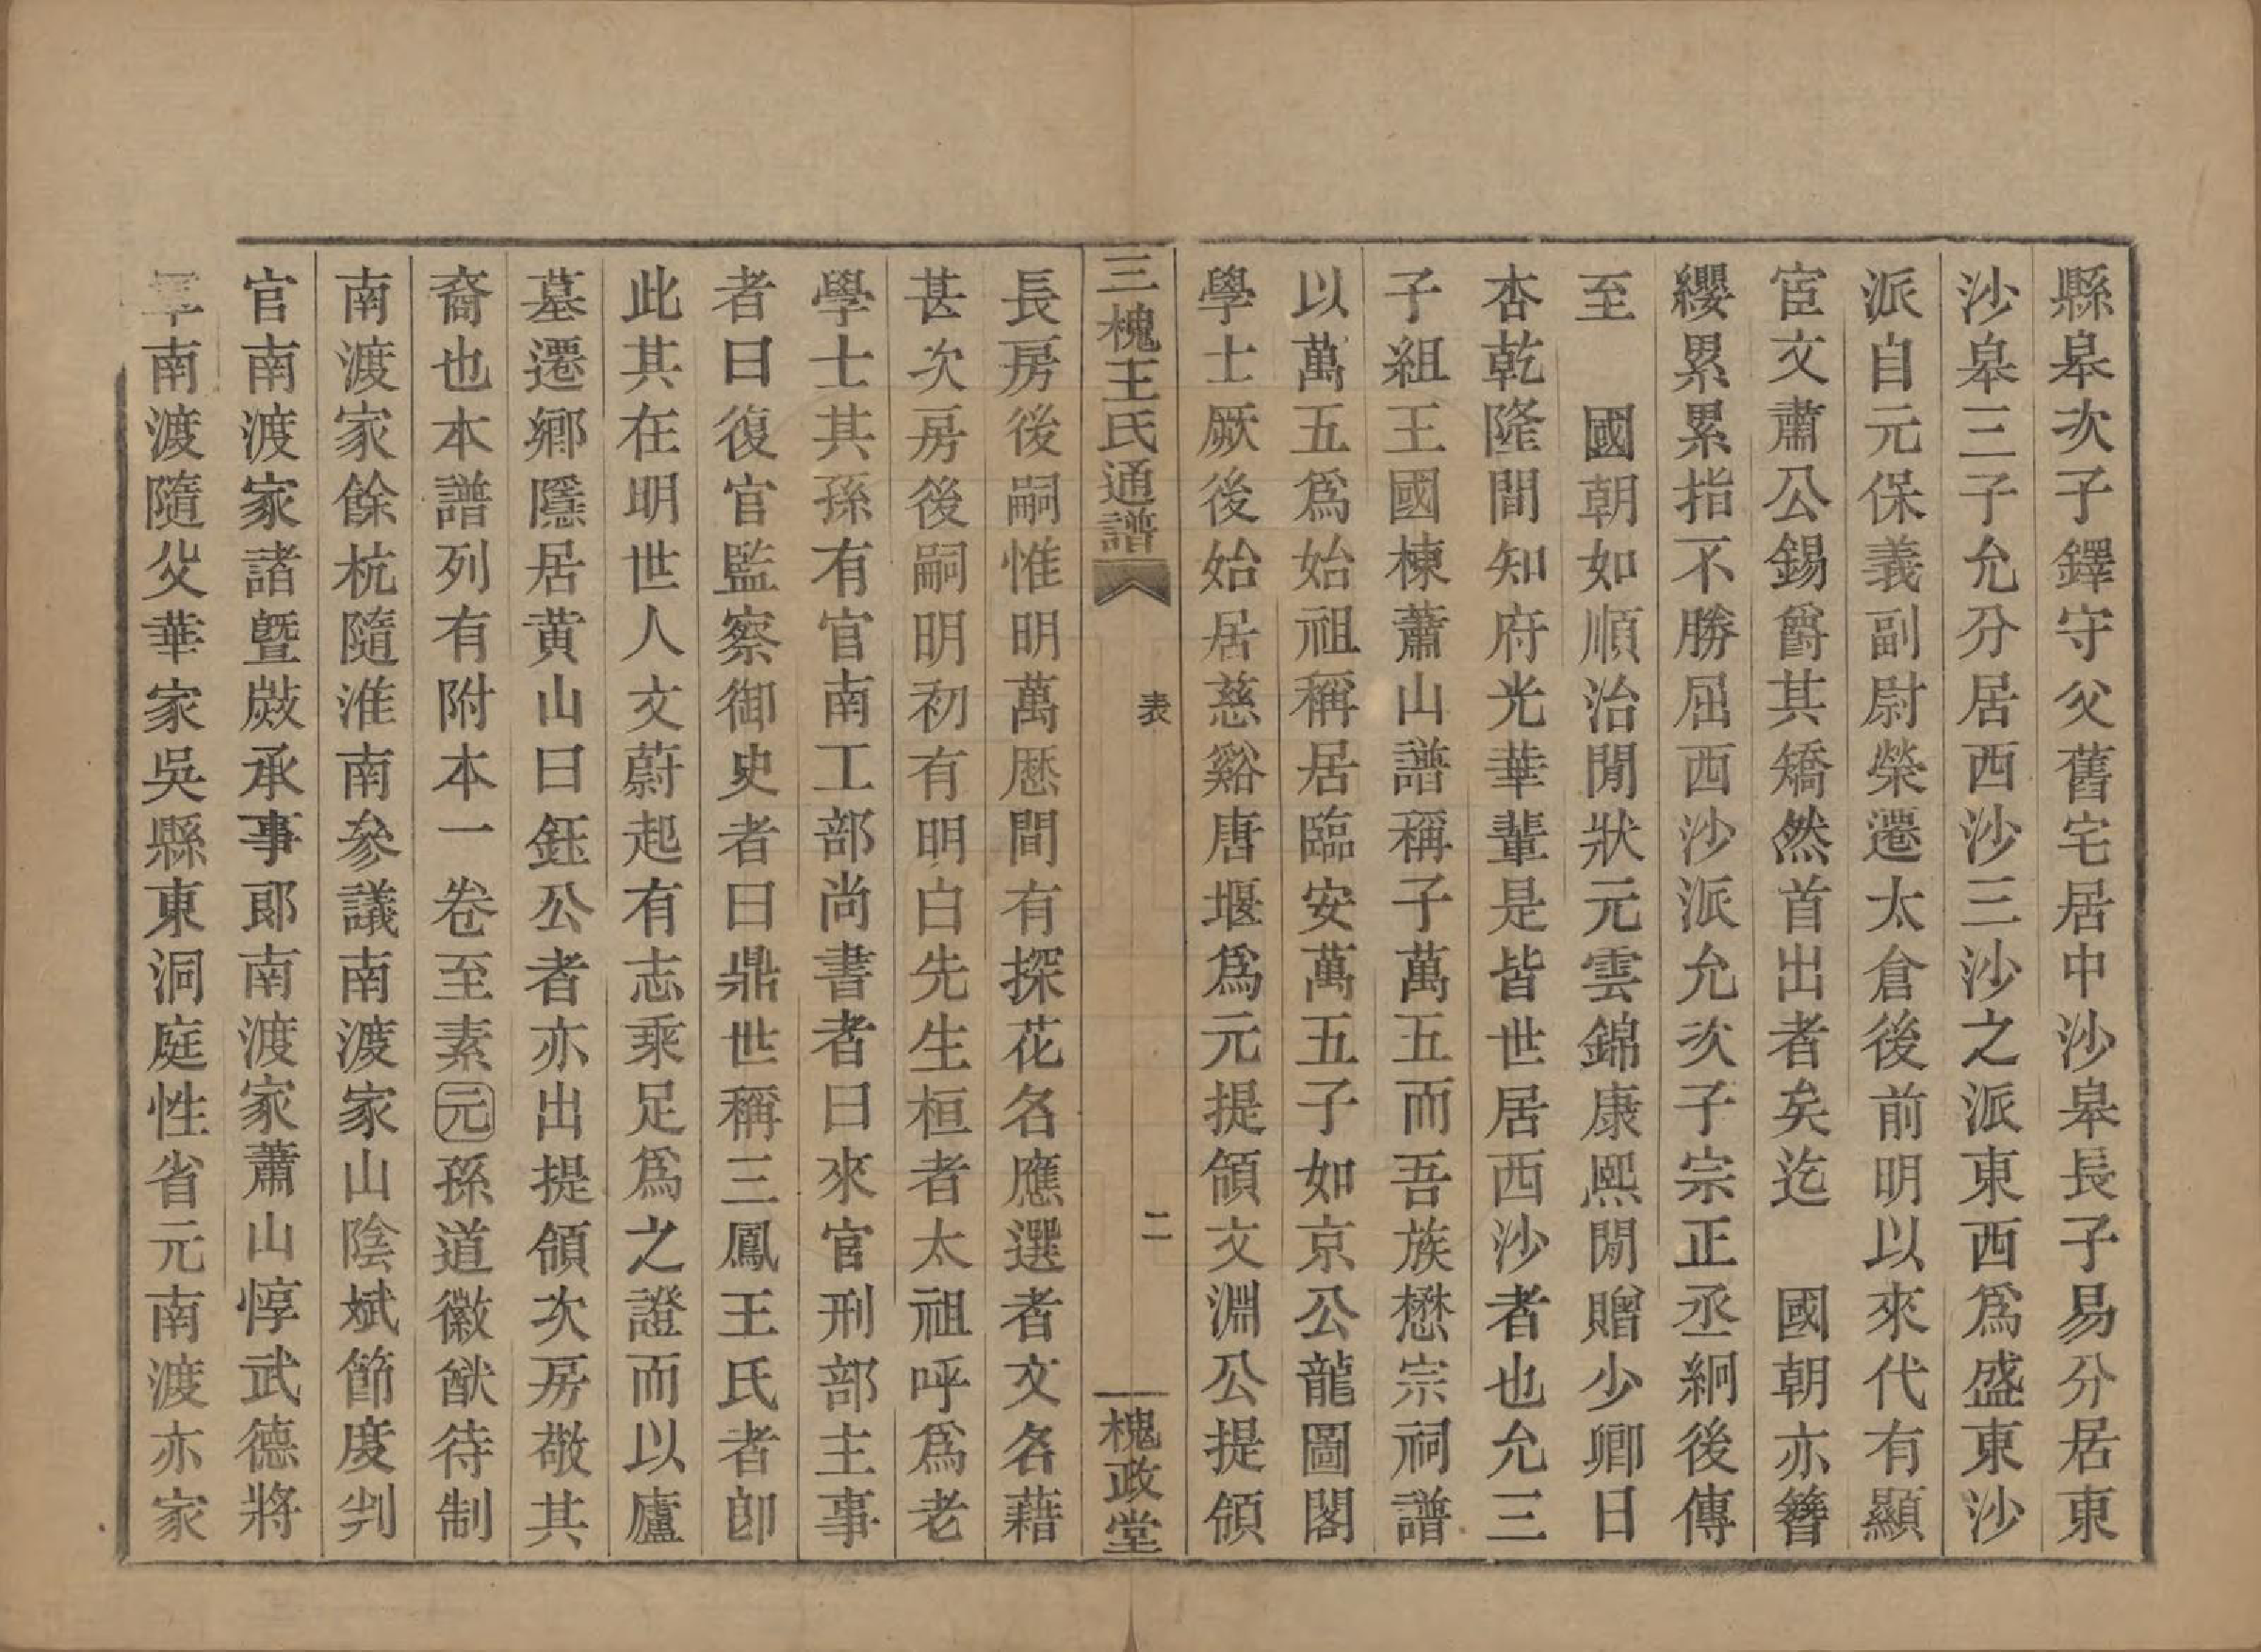 縣皋次子鐸守父舊宅居中沙皋長子易分居東
沙皋三子允分居西沙三沙之派東西爲盛東沙
派自元保義副尉榮遷太倉後前明以來代有顯
宦文肅公錫爵其矯然首出者矣迄　國朝亦簪
纓累累指不勝屈西沙派允次子宗正丞絅後傳
至　國朝如順治閒狀元雲錦康熙閒贈少卿日
杏乾隆間知府光華輩是皆世居西沙者也允三
子組王國棟蕭山譜稱子萬五而吾族懋宗祠譜
以萬五爲始祖稱居臨安萬五子如京公龍圖閣
學士厥後始居慈谿唐堰爲元提領文淵公提領
三槐王氏通譜　表　二　槐政堂
長房後嗣惟明萬厯間有探花名應選者文名藉
甚次房後嗣明初有明白先生桓者太祖呼爲老
學士其孫有官南工部尚書者曰來官刑部主事
者曰復官監察御史者曰鼎世稱三鳳王氏者卽
此其在明世人文蔚起有志乘足爲之證而以廬
墓遷鄉隱居黄山曰鈺公者亦出提領次房敬其
裔也本譜列有附本一卷至素元孫道徽猷待制
南渡家餘杭隨淮南參議南渡家山陰斌節度判
官南渡家諸暨敳承事郎南渡家蕭山惇武德將
軍南渡隨父華家吳縣東洞庭性省元南渡亦家